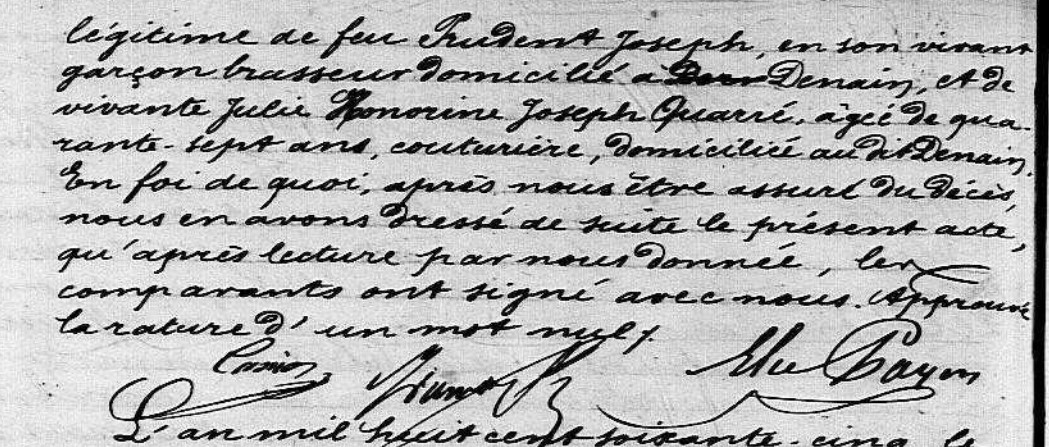 légitime de feu Prudent Joseph, en son vivant
garçon brasseur domicilié à Denain, et de
vivante Julie Honorine Joseph Quarré, âgée de qua-
rante-sept ans, couturière, domiciliée au dit Denain.
En foi de quoi, après nous être assuré du décès,
nous en avons dressé de suite le présent acte,
qu'après lecture par nous donnée, les
comparants ont signé avec nous. Approuvé
la rature d'un mot nul.
Elie Payen
L'an mil huit cent soixante-cinq, le